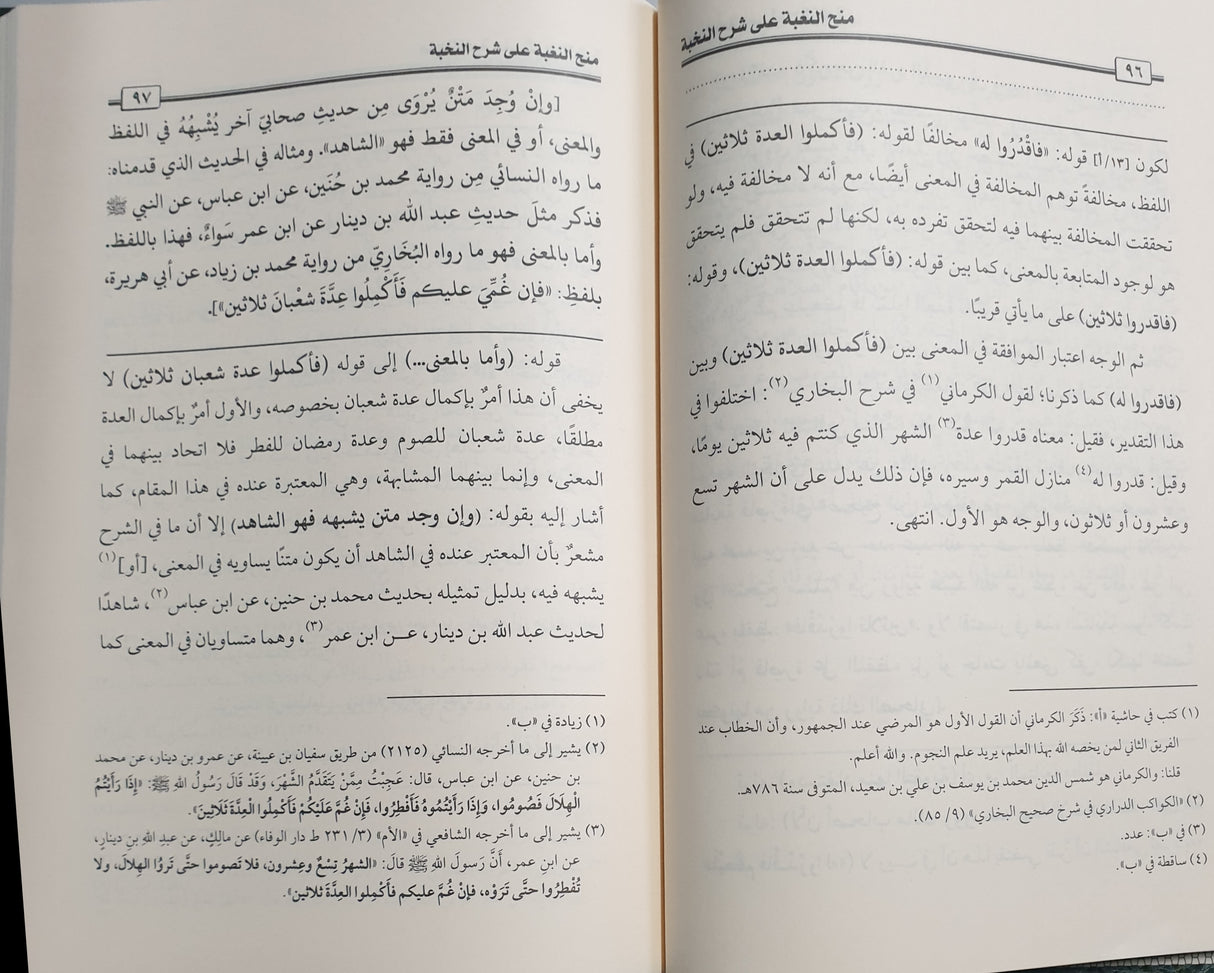 منح النغبة على شرح النخبة
٩٦
لكون [١٣/أ] قوله: «فاقْدُرُوا له» مخالفًا لقوله: (فأكملوا العدة ثلاثين) في
اللفظ، مخالفةً توهم المخالفة في المعنى أيضًا، مع أنه لا مخالفة فيه، ولو
تحققت المخالفة بينهما فيه لتحقق تفرده به، لكنها لم تتحقق فلم يتحقق
هو لوجود المتابعة بالمعنى، كما بين قوله: (فأكملوا العدة ثلاثين)، وقوله:
(فاقدروا ثلاثين) على ما يأتي قريبًا.
ثم الوجه اعتبار الموافقة في المعنى بين (فأكملوا العدة ثلاثين) وبين
(فاقدروا له) كما ذكرنا؛ لقول الكرماني(١) في شرح البخاري(٢): اختلفوا في
هذا التقدير، فقيل: معناه قدروا عدة(٣) الشهر الذي كنتم فيه ثلاثين يومًا،
وقيل: قدروا له(٤) منازل القمر وسيره، فإن ذلك يدل على أن الشهر تسع
وعشرون أو ثلاثون، والوجه هو الأول. انتهى.
(١) كتب في حاشية «أ»: ذَكَرَ الكرماني أن القول الأول هو المرضي عند الجمهور، وأن الخطاب عند
الفريق الثاني لمن يخصه الله بهذا العلم، يريد علم النجوم. والله أعلم.
قلنا: والكرماني هو شمس الدين محمد بن يوسف بن علي بن سعيد، المتوفى سنة ٧٨٦هـ.
(٢) «الكواكب الدراري في شرح صحيح البخاري» (٩/ ٨٥).
(٣) في «ب»: عدد.
(٤) ساقطة في «ب».
منح النغبة على شرح النخبة
٩٧
[وإنْ وُجِدَ مَتْنٌ يُرْوَى مِن حديثِ صحابيّ آخر يُشْبِهُهُ في اللفظ
والمعنى، أو في المعنى فقط فهو «الشاهد». ومثاله في الحديث الذي قدمناه:
ما رواه النسائي مِن رواية محمد بن حُنَين، عن ابن عباس، عن النبي ﷺ
فذكر مثلَ حديثِ عبد الله بن دينار عن ابن عمر سَواءٌ، فهذا باللفظ.
وأما بالمعنى فهو ما رواه البُخَارِيّ من رواية محمد بن زياد، عن أبي هريرة،
بلفظِ: «فإن غُمِّيَ عليكم فَأَكْمِلُوا عِدَّةَ شعْبانَ ثلاثين»].
قوله: (وأما بالمعنى...) إلى قوله (فأكملوا عدة شعبان ثلاثين) لا
يخفى أن هذا أمرٌ بإكمال عدة شعبان بخصوصه، والأول أمرٌ بإكمال العدة
مطلقًا، عدة شعبان للصوم وعدة رمضان للفطر فلا اتحاد بينهما في
المعنى، وإنما بينهما المشابهة، وهي المعتبرة عنده في هذا المقام، كما
أشار إليه بقوله: (وإن وجد متن يشبهه فهو الشاهد) إلا أن ما في الشرح
مشعرٌ بأن المعتبر عنده في الشاهد أن يكون متنًا يساويه في المعنى، [أو](١)
يشبهه فيه، بدليل تمثيله بحديث محمد بن حنين، عن ابن عباس(٢)، شاهدًا
لحديث عبد الله بن دينار، عـن ابن عمر(٣)، وهما متساويان في المعنى كما
(١) زيادة في «ب».
(٢) يشير إلى ما أخرجه النسائي (٢١٢٥) من طريق سفيان بن عيينة، عن عمرو بن دينار، عن محمد
بن حنين، عن ابن عباس، قال: عَجِبْتُ مِمَّنْ يَتَقَدَّمُ الشَّهْرَ، وَقَدْ قَالَ رَسُولُ اللهِ ﷺ: «إِذَا رَأَيْتُمُ
الْهِلَالَ فَصُومُوا، وَإِذَا رَأَيْتُمُوهُ فَأَفْطِرُوا، فَإِنْ غُمَّ عَلَيْكُمْ فَأَكْمِلُوا الْعِدَّةَ ثَلَاثِينَ».
(٣) يشير إلى ما أخرجه الشافعي في «الأم» (٣/ ٢٣١ ط دار الوفاء) عن مالكٍ، عن عبدِ اللهِ بنِ دينارٍ،
عن ابنِ عمر، أنَّ رَسولَ اللهِ ﷺ قالَ: «الشهرُ تِسْعٌ وعِشرون، فلا تَصوموا حتَّى تَرَوُا الهِلالَ، ولا
تُفْطِرُوا حتَّى تَرَوْه، فإنْ غُمَّ عليكم فأكْمِلُوا العِدَّةَ ثلاثين».